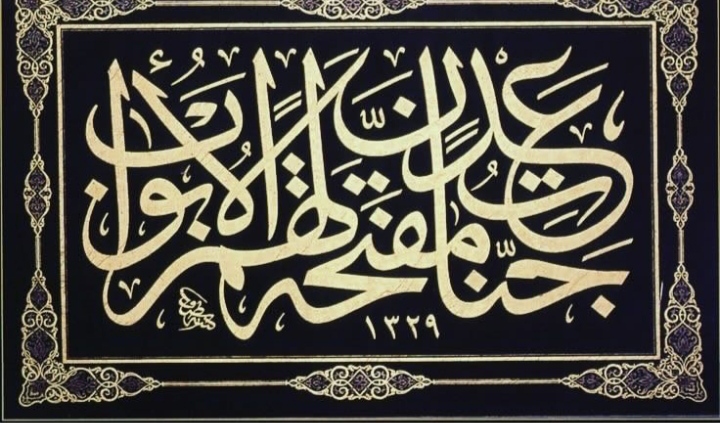 جَنَّاتِ عَدْنٍ مُفَتَّحَةً لَهُمُ الْأَبْوَابُ
١٣٢٩